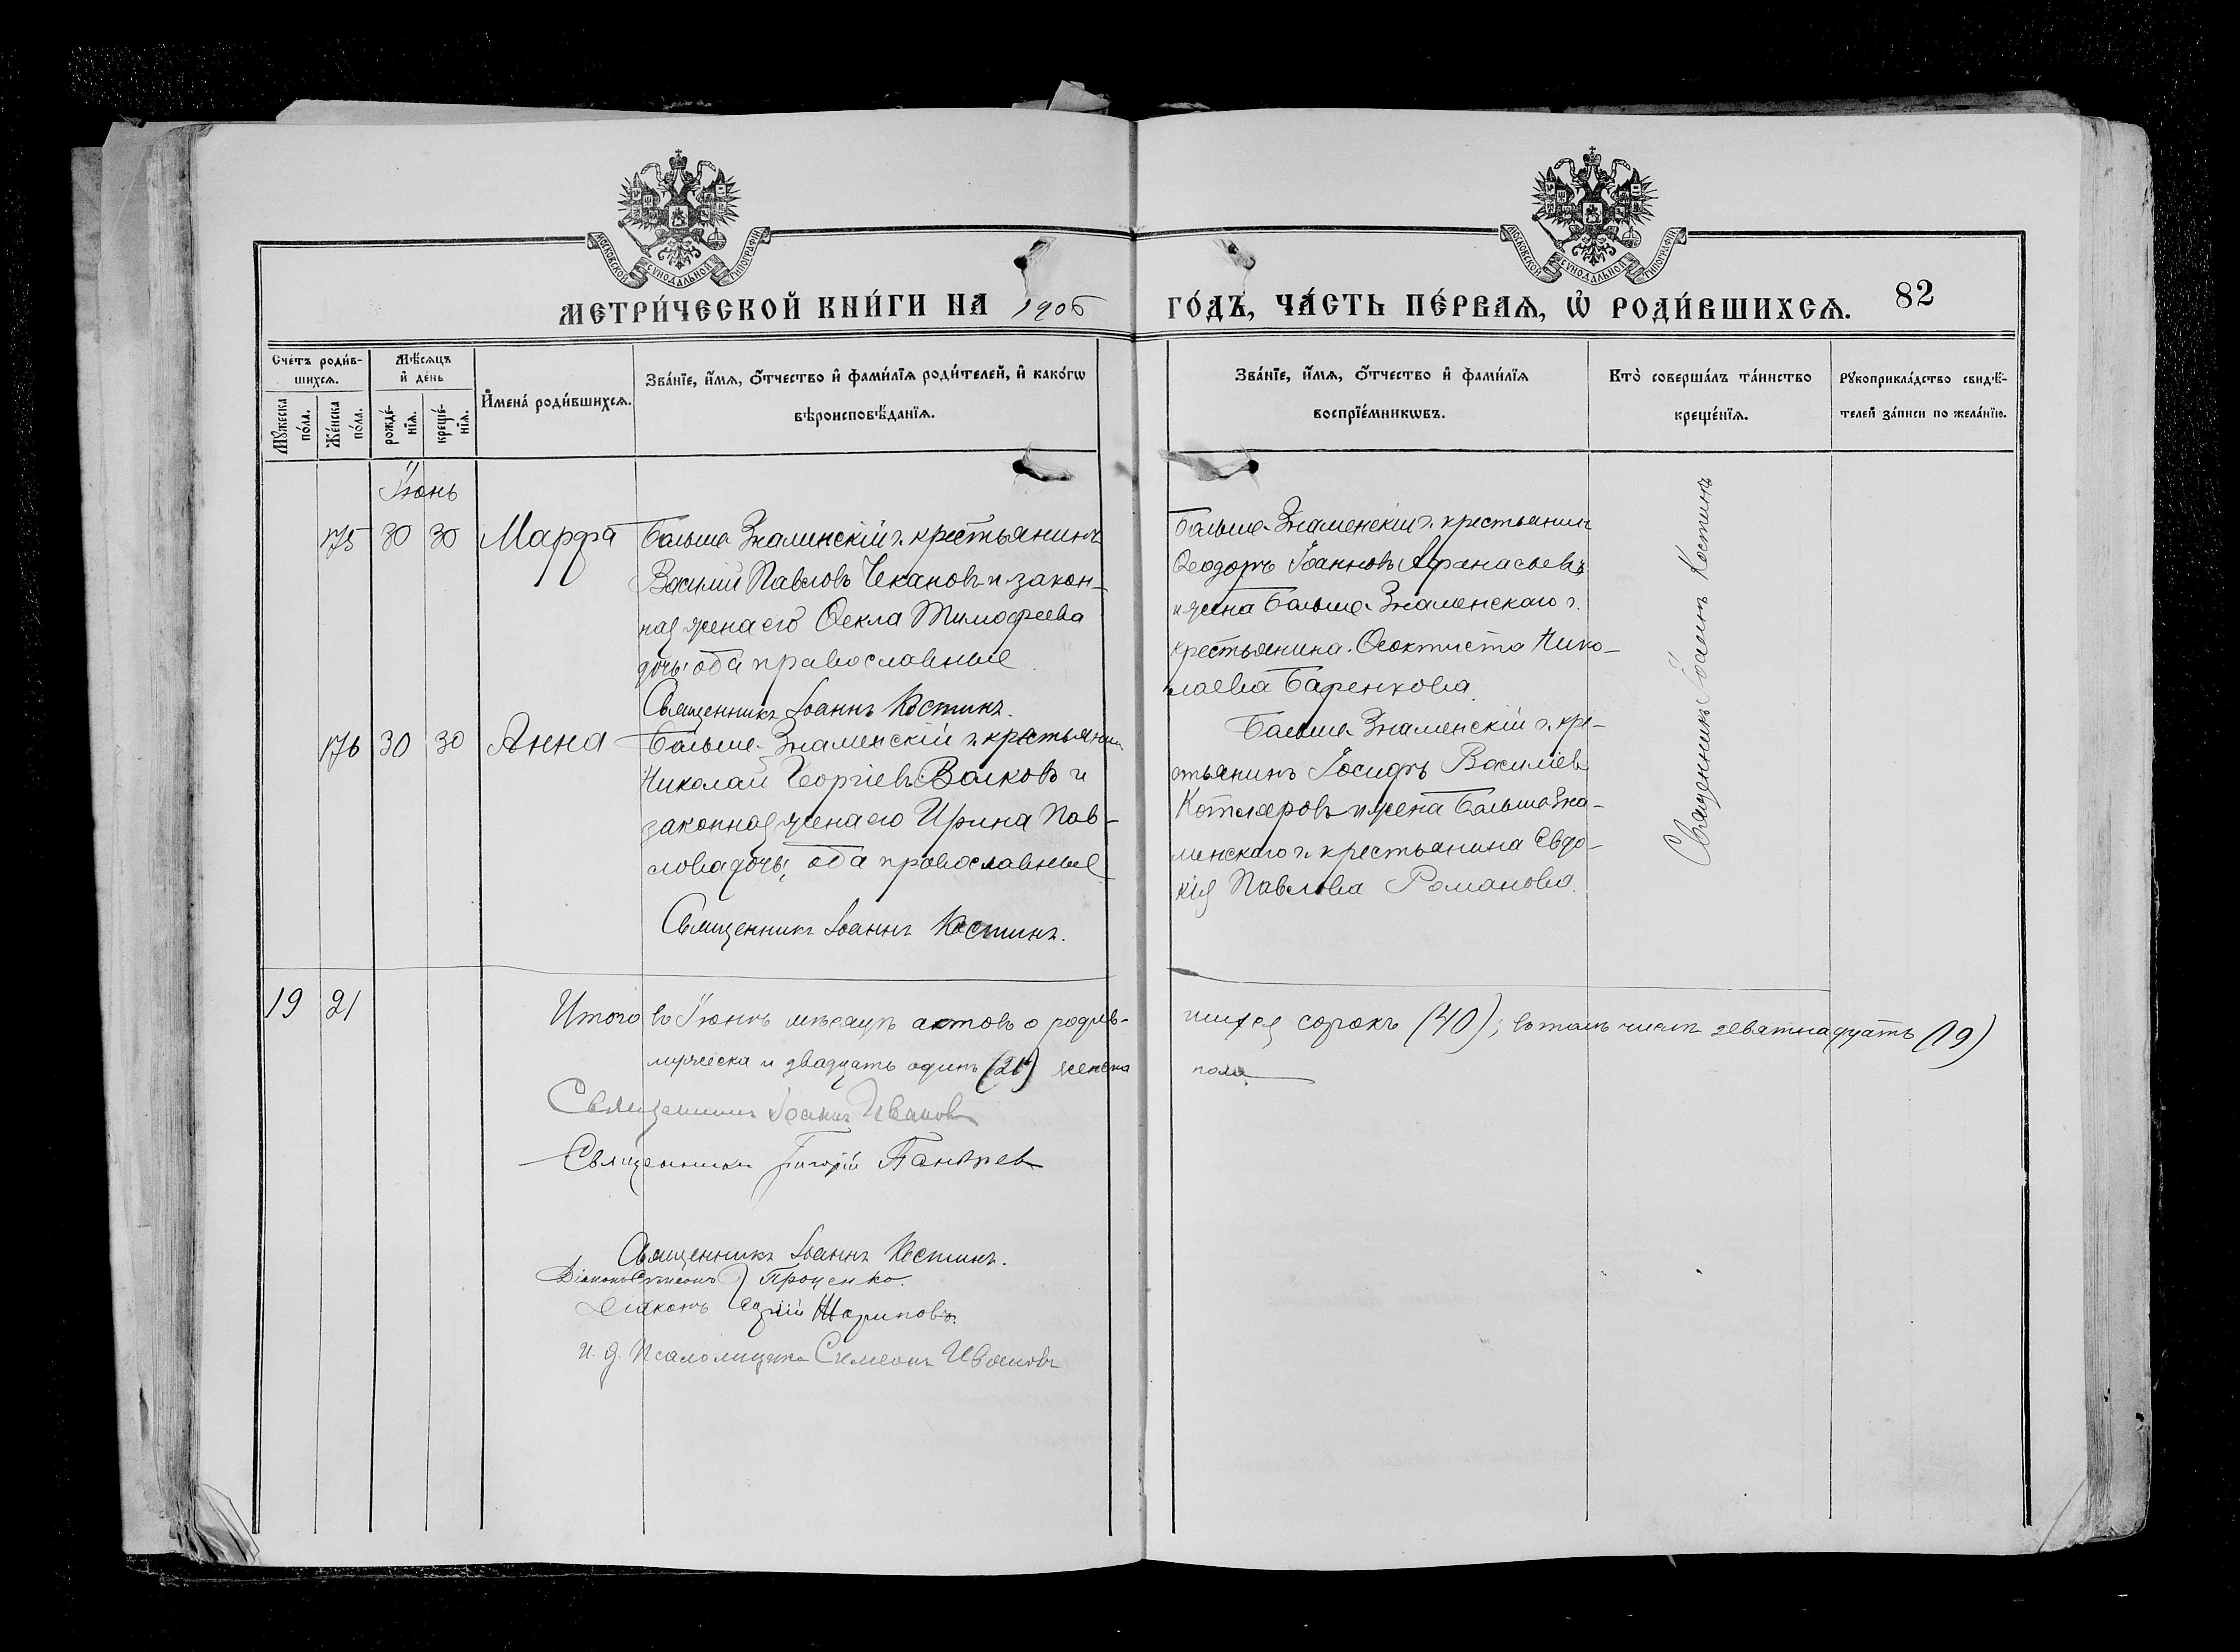 МОСКОВСКОЙ СѴНОДАЛЬНОЙ ТИПОГРАФІИ
МОСКОВСКОЙ СѴНОДАЛЬНОЙ ТИПОГРАФІИ
МЕТРИ́ЧЕСКОЙ КНИ́ГИ НА 1906 ГО́ДЪ, ЧА́СТЬ ПЕ́РВАѦ, Ѿ РОДИ́ВШИХСѦ. 82
Сче́тъ роди́в-
шихсѧ.
Мꙋ́жеска по́ла.
Же́нска по́ла.
Мѣ́сѧцъ
и҆ де́нь
рожде́-
нїѧ.
креще́-
нїѧ.
И҆мена́ роди́вшихсѧ.
Зва́нїе, и҆́мѧ, ѻ҆́тчество и҆ фами́лїѧ роди́телей, и҆ како́гѡ
вѣроисповѣ́данїѧ.
Зва́нїе, и҆́мѧ, ѻ҆́тчество и҆ фами́лїѧ
воспрїе́мникѡвъ.
Кто̀ соверша́лъ та́инство
креще́нїѧ.
Рꙋкоприкла́дство свидѣ́-
телей за́писи по жела́нїю.
Іюнь
175 30 30 Марфа
Больше-Знаменскій г. крестьянинъ
Василій Павловъ Чекановъ и закон-
ная жена его Ѳекла Тимофеева
дочь оба православные
Священникъ Іоаннъ Костинъ.
Больше-Знаменскій г. крестьянинъ
Ѳеодоръ Іоанновъ Афанасьевъ
и жена Больше-Знаменскаго г.
крестьянина Ѳеоктиста Нико-
лаева Баренкова.
176 30 30 Анна
Больше-Знаменскій г. крестьянин
Николай Георгіевъ Волковъ и
законная жена его Ирина Пав-
лова дочь, оба православные
Священникъ Іоаннъ Костинъ.
Больше-Знаменскій г. кре-
стьянинъ Іосифъ Василіев
Котляровъ и жена Больше Зна-
менскаго г. крестьянина Евдо-
кія Павлова Романова.
Священникъ Іоаннъ Костинъ
19 21
Итого въ Іюнѣ мѣсяцѣ актовъ о родив-
шихся сорокъ (40); въ томъ числѣ девятнадцать (19)
мужеска и двадцать одинъ (21) женска
пола
Священникъ Іоаннъ Иванов
Священникъ Григорій
Священникъ Іоаннъ Костинъ.
Діаконъ Симеонъ Проценко.
Діаконъ
И. д. Псаломщика Симеонъ Ивановъ